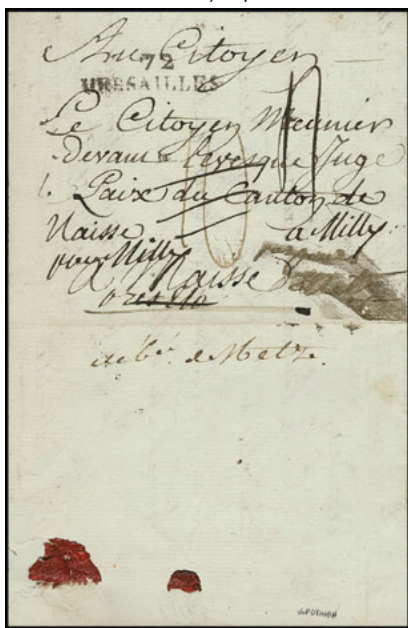 Au Citoyen
72
VERSAILLES
Le Citoyen Meunier
Devant Levesque Juge
Paix du Canton de
Maisse
a Milly
pour Milly
Maisse
de Metz
POTHION